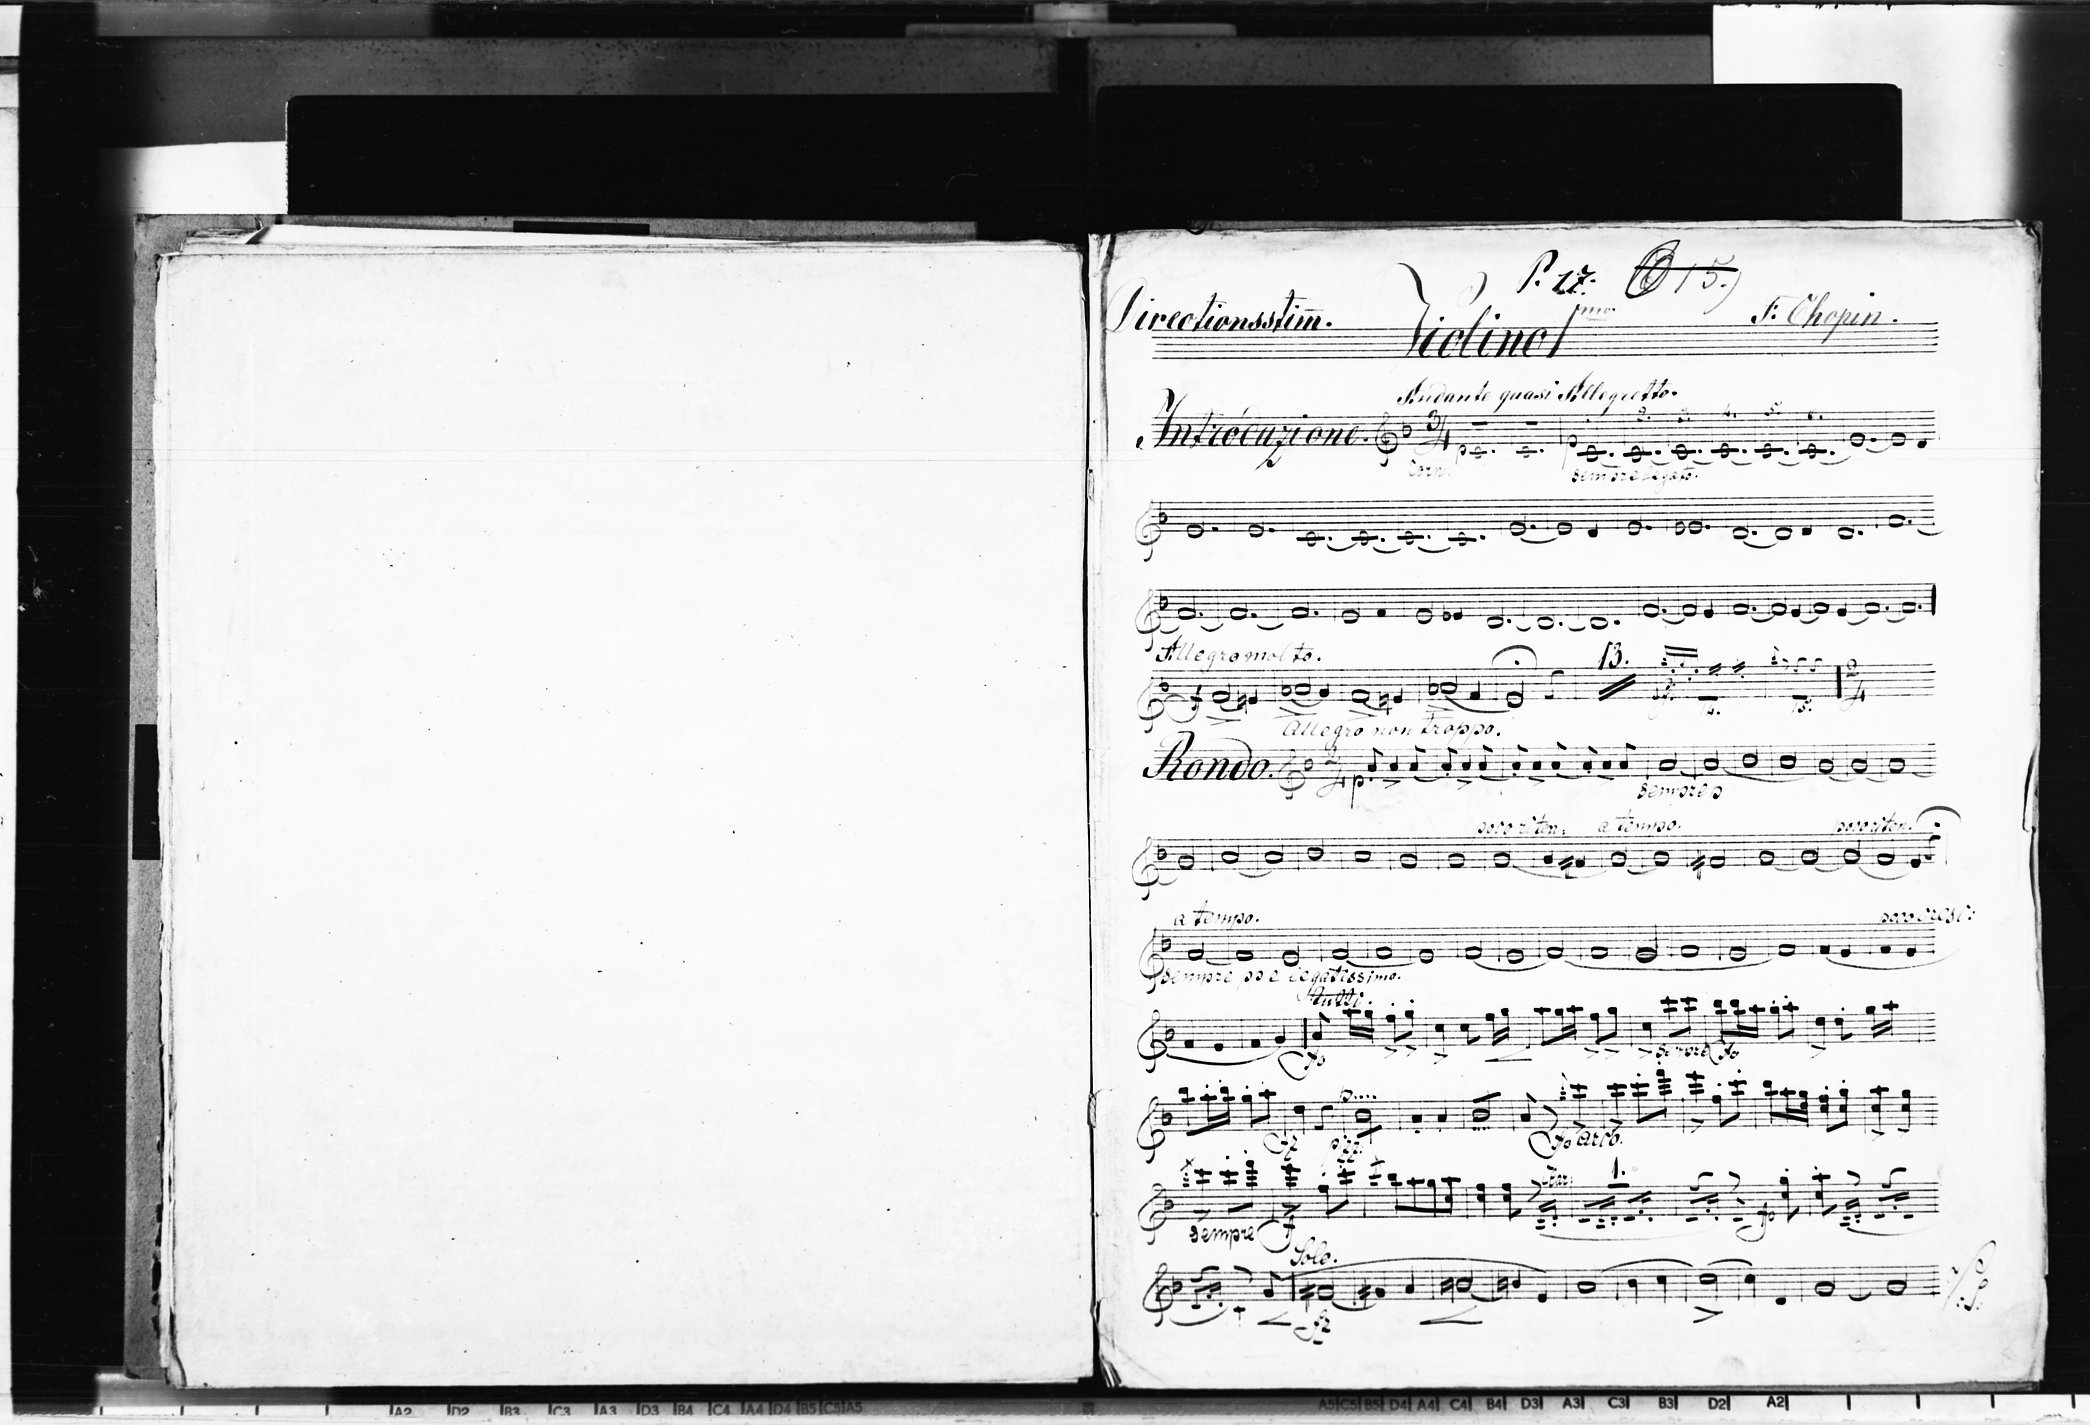 P. 17. 15.)
Directionsstim̅. Violino 1mo. F. Chopin.
Andante quasi Allegretto.
Introduzione. 3/4 p 2. 3. 4. 5. 6.
Corni sempre legato.
Allegro molto. 13.
f 14. 15. 2/4
Allegro non troppo.
Rondo. 2/4 p
sempre p
poco riten. a tempo. poco riten.
a tempo. poco cresc:
sempre pp e legatissimo.
Tutti.
fo sempre fo
fz pizz. fo arco.
1.
sempre f fo
Solo.
fz
V.S.
A2 D2 B3 C3 A3 D3 B4 C4 A4 D4 B5 C5 A5 A5 C5 B5 D4 A4 C4 B4 D3 A3 C3 B3 D2 A2